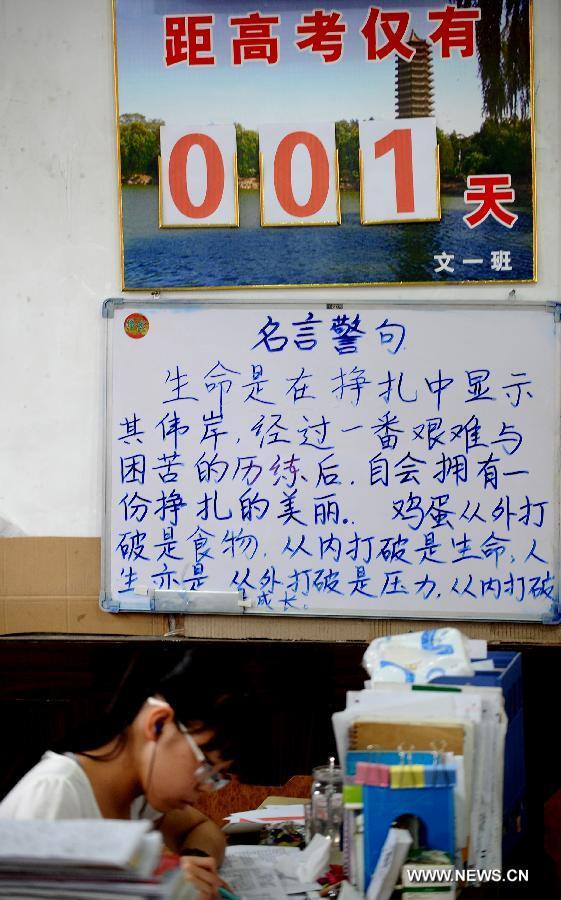 距高考仅有
001天
文一班
名言警句
生命是在挣扎中显示
其伟岸,经过一番艰难与
困苦的历练后,自会拥有一
份挣扎的美丽。 鸡蛋从外打
破是食物,从内打破是生命,人
生亦是 从外打破是压力,从内打破
是成长。
WWW.NEWS.CN